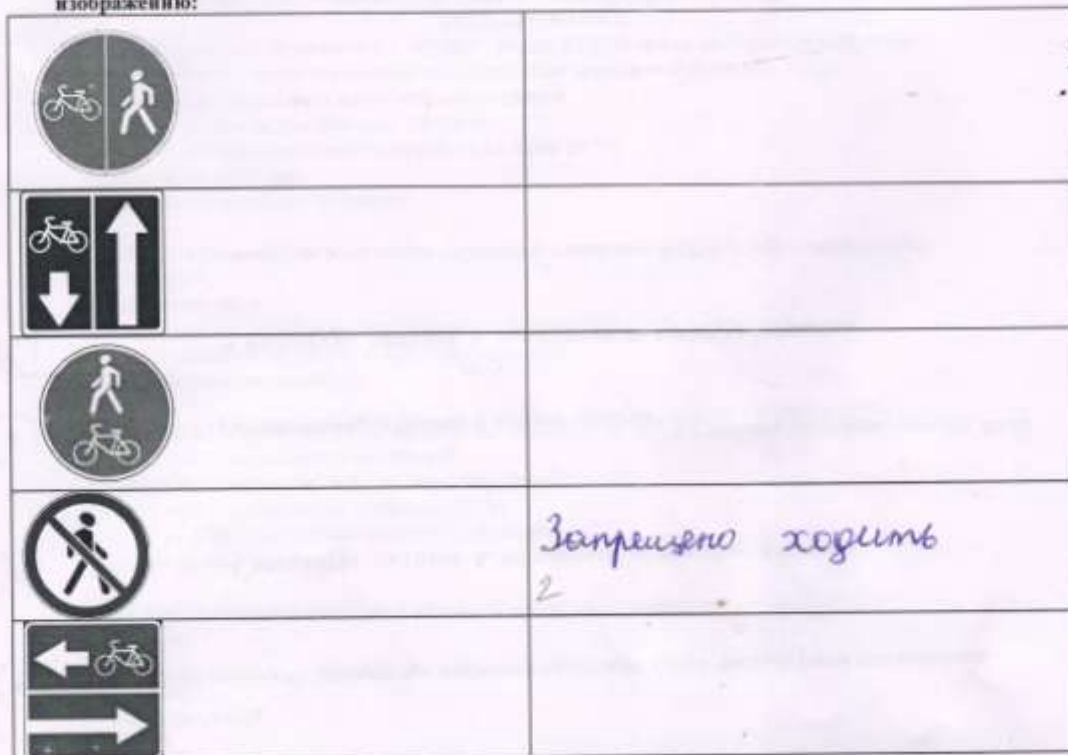 изображению:
Запрещено ходить
2